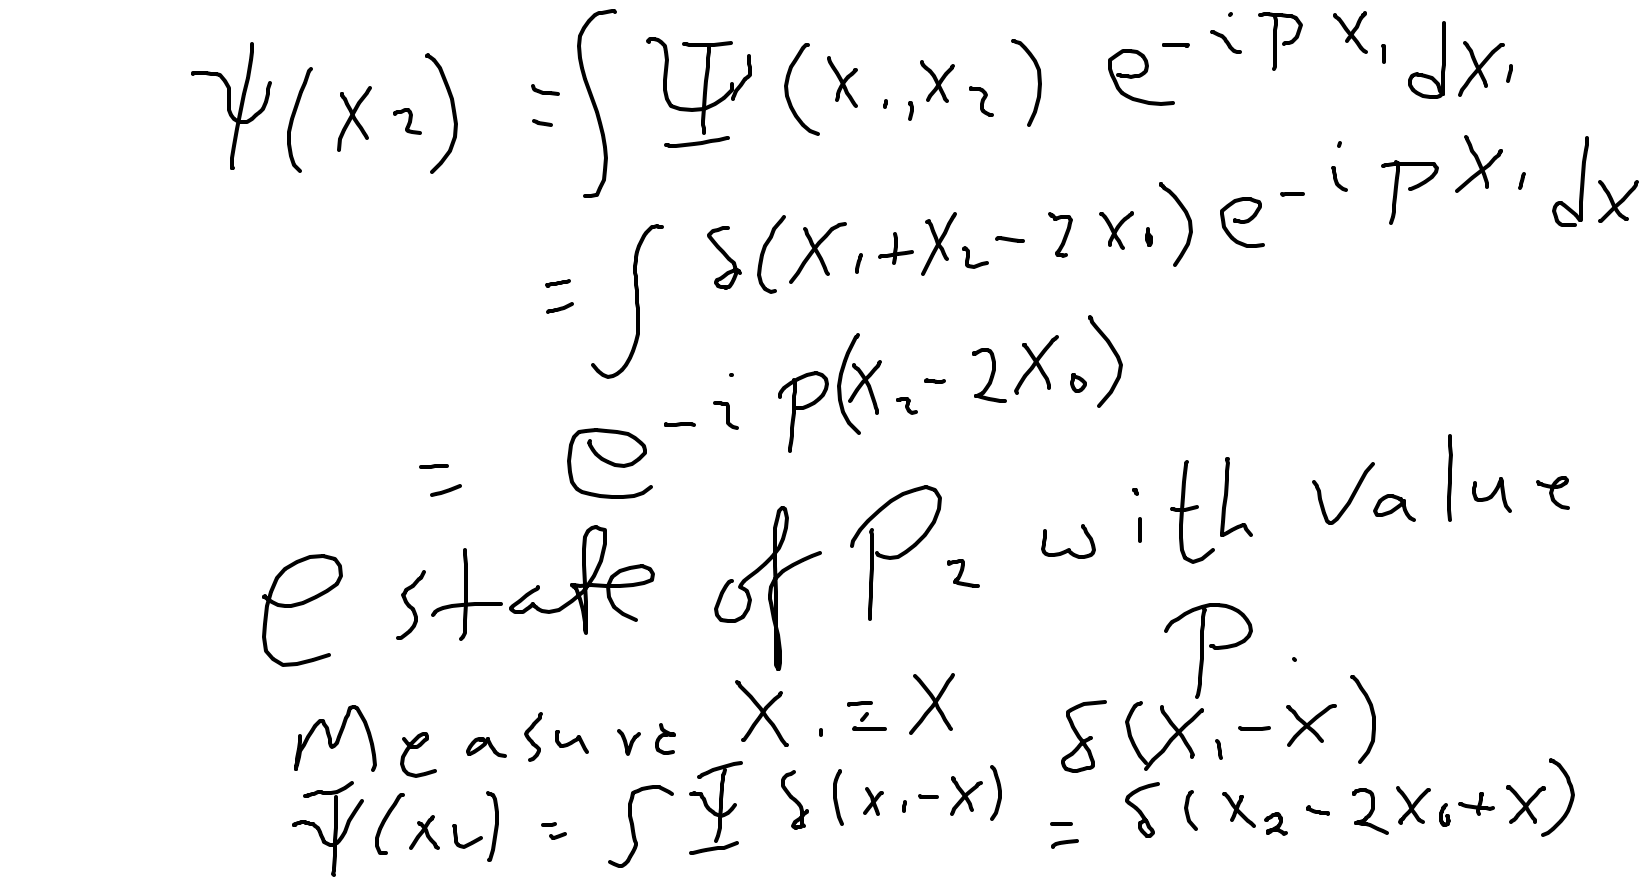 ψ(x₂) = ∫ Ψ(x₁,x₂) e^{-ipx₁} dx₁
= ∫ δ(x₁+x₂-2x₀) e^{-ipx₁} dx
= e^{-ip(x₂-2x₀)}
estate of P₂ with value
P.
Measure X₁ = X δ(x₁-X)
Ψ(x₂) = ∫ Ψ δ(x₁-X) = δ(x₂-2x₀+X)